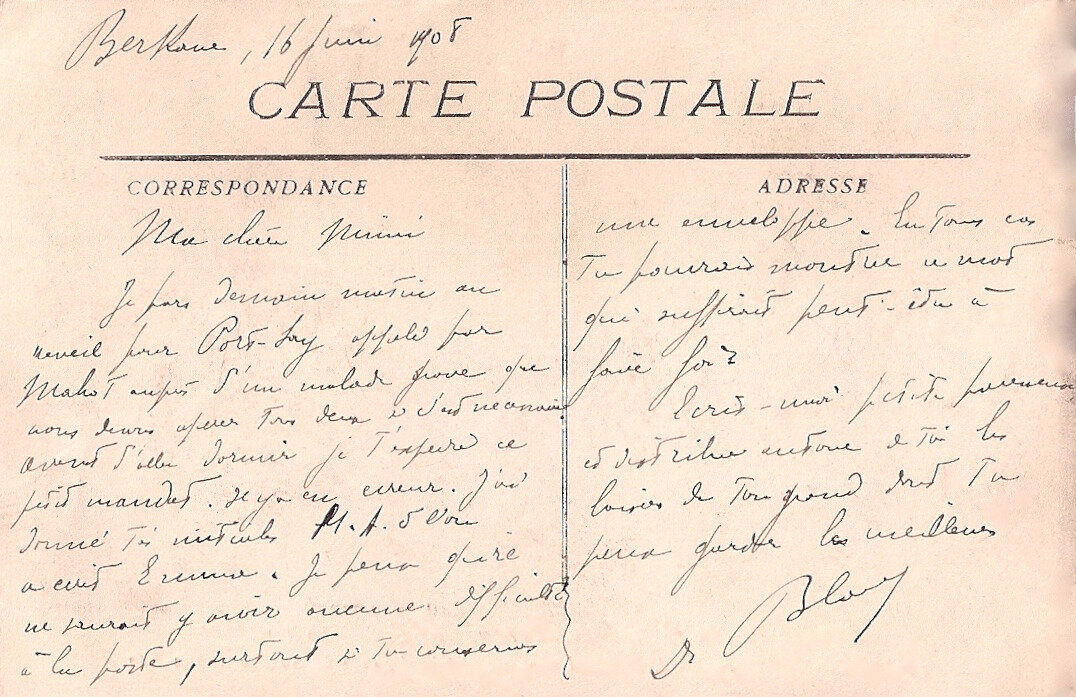 Berkane, 16 juin 1908
CARTE POSTALE
CORRESPONDANCE
Ma chère Mimi
Je pars demain matin au
réveil pour Port-Say appelé par
Mahot auprès d'un malade grave que
nous devons opérer tous deux si c'est nécessaire
avant d'aller dormir je t'expédie ce
petit mandat. Il y a eu erreur. J'ai
donné tes initiales M. A. et l'on
a écrit Emma. Je pense qu'il
ne saurait y avoir aucune difficulté
à la poste, surtout si tu conserves
ADRESSE
une enveloppe. En tous cas
tu pourrais montrer ce mot
qui suffirait peut-être à
faire foi?
Ecris-moi petite
et distribue autour de toi les
de ton grand dont tu
peux garder les meilleurs
Dr